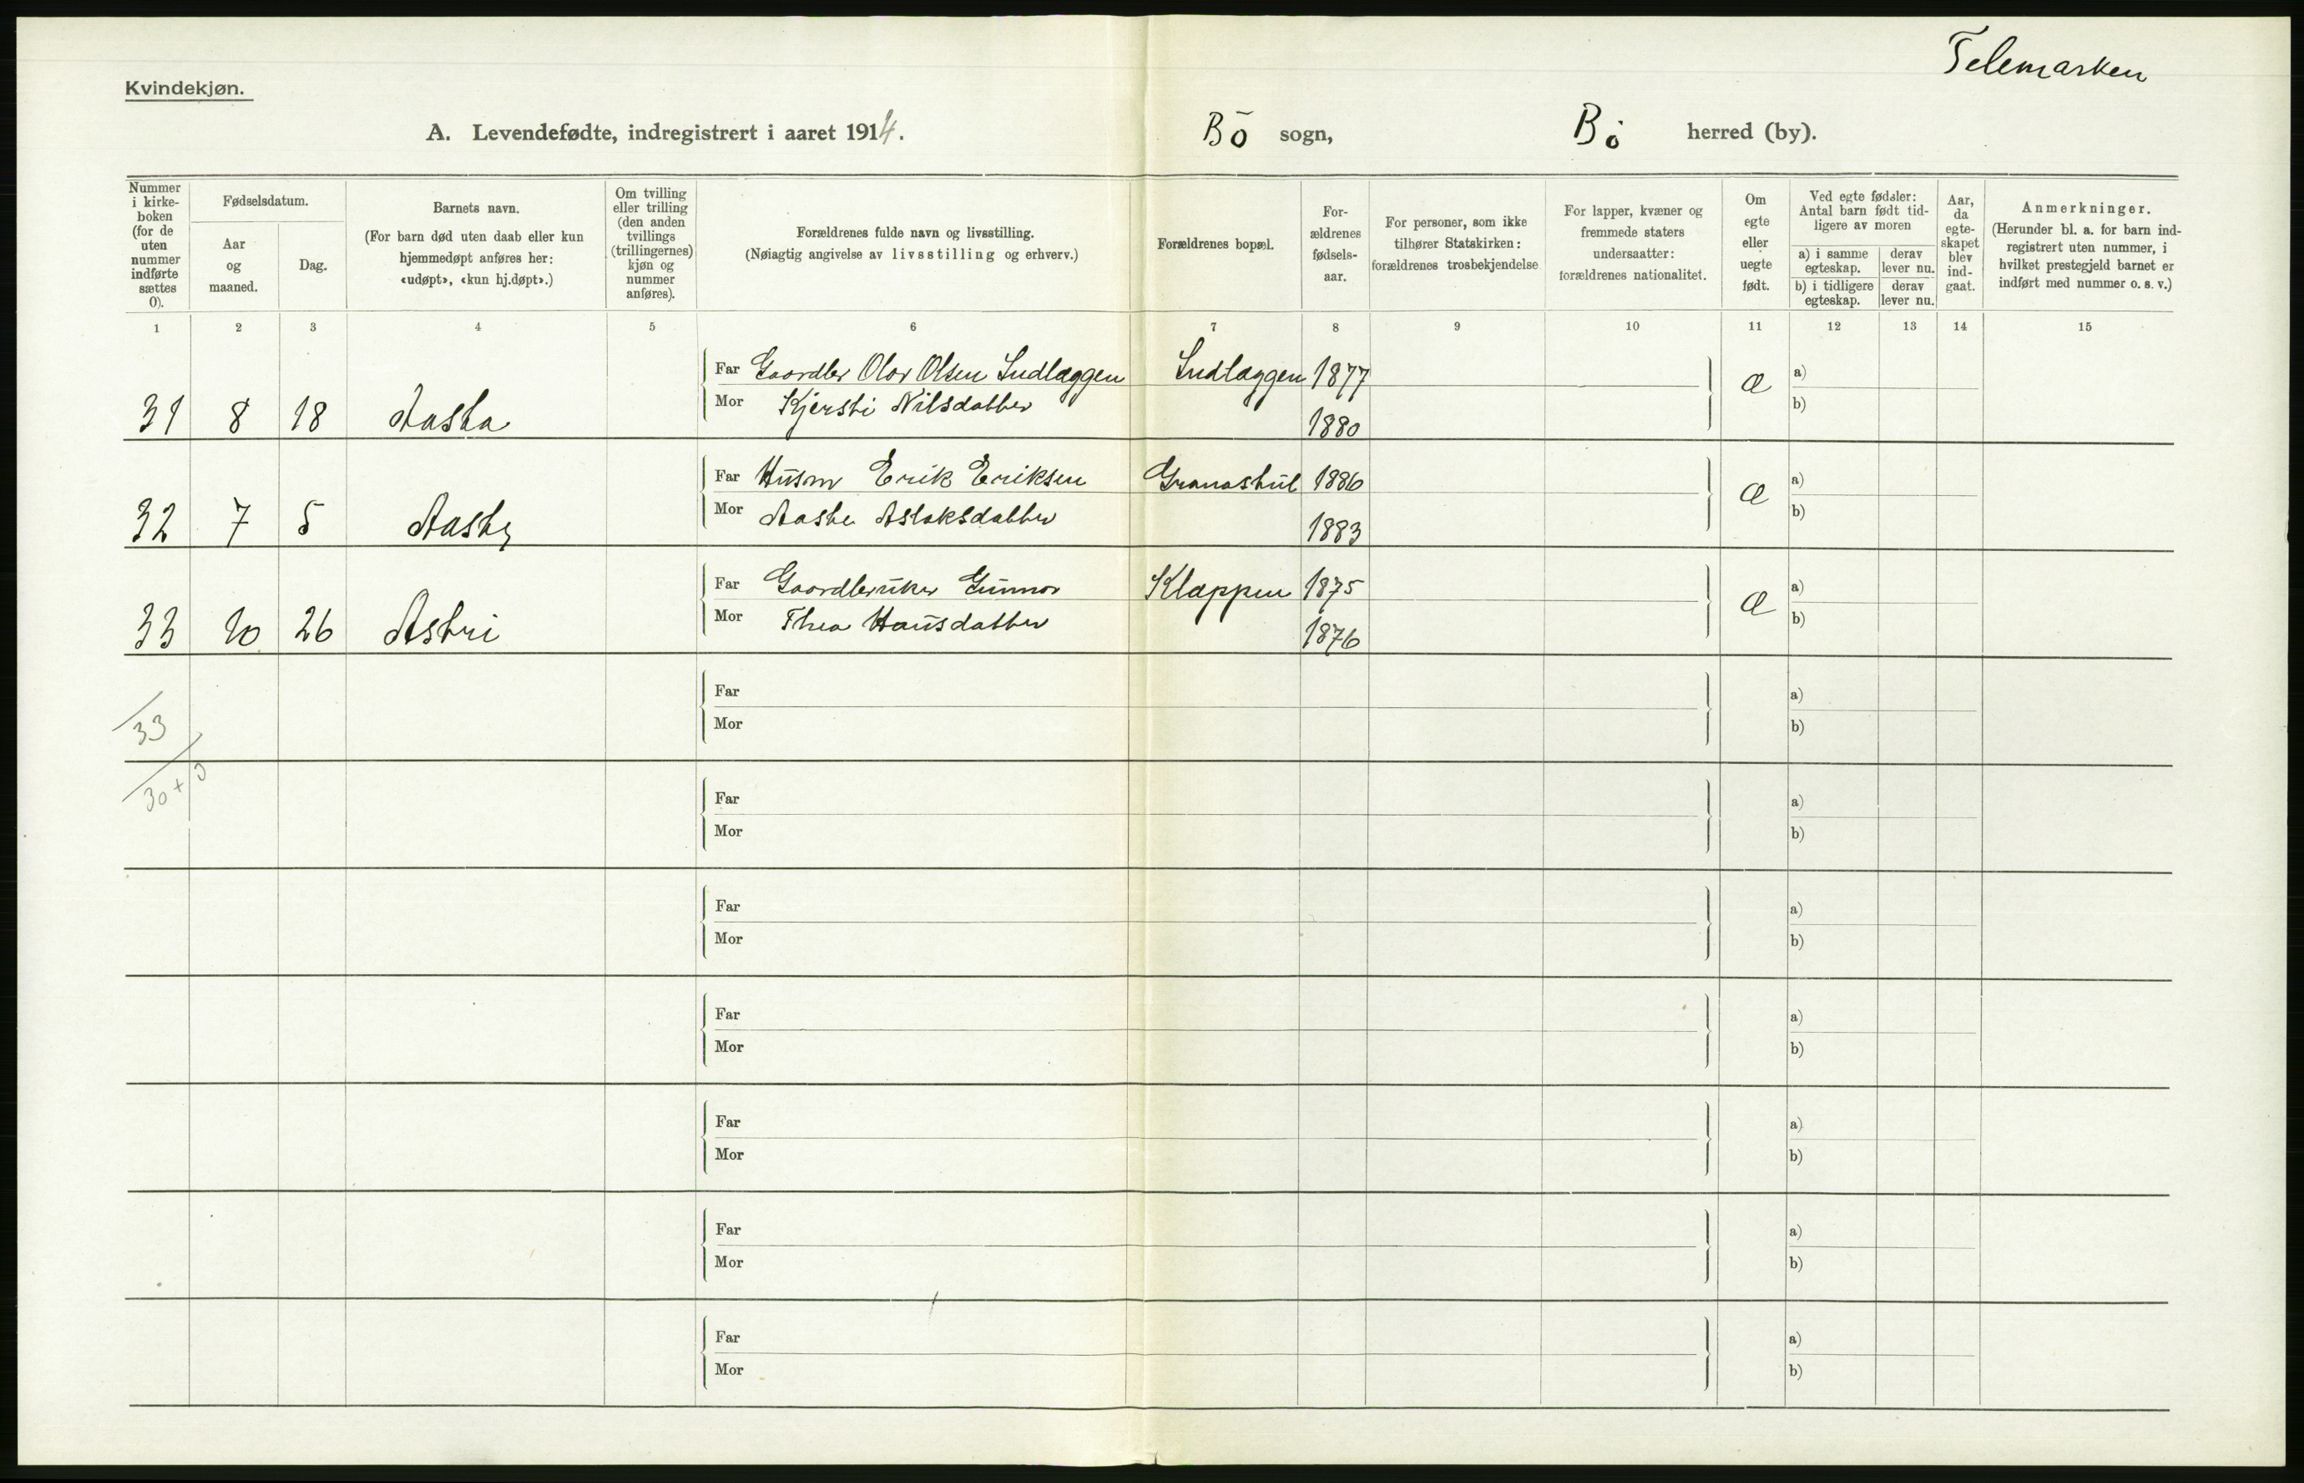 Telemarken
Kvindekjøn.
A. Levendefødte, indregistrert i aaret 1914. Bö sogn, Bö herred (by).
Nummer i kirkeboken (for de uten nummer indførte sættes 0).
Fødselsdatum.
Aar og maaned.
Dag.
Barnets navn.
(For barn død uten daab eller kun hjemmedøpt anføres her: «udøpt», «kun hj.døpt».)
Om tvilling eller trilling (den anden tvillings (trillingernes) kjøn og nummer anføres).
Forældrenes fulde navn og livsstilling.
(Nøiagtig angivelse av livsstilling og erhverv.)
Forældrenes bopæl.
Forældrenes fødselsaar.
For personer, som ikke tilhører Statskirken: forældrenes trosbekjendelse
For lapper, kvæner og fremmede staters undersaatter: forældrenes nationalitet.
Om egte eller uegte født.
Ved egte fødsler: Antal barn født tidligere av moren
a) i samme egteskap. derav lever nu.
b) i tidligere egteskap. derav lever nu.
Aar, da egteskapet blev indgaat.
Anmerkninger.
(Herunder bl. a. for barn indregistrert uten nummer, i hvilket prestegjeld barnet er indført med nummer o. s. v.)
1 2 3 4 5 6 7 8 9 10 11 12 13 14 15
Far Gaardbr Olav Olsen Sudlæggen Sudlæggen 1877 a)
31 8 18 Aasta Mor Kjersti Nilsdatter 1880 æ b)
Far Husm Erik Eriksen 1886 a)
32 7 5 Aaste Mor Aaste Aslaksdatter 1883 æ b)
Far Gaardbruker Gunnar Klæppen 1875 a)
33 10 26 Astri Mor Thea Hansdatter 1876 æ b)
Far a)
33
Mor b)
30+3
Far a)
Mor b)
Far a)
Mor b)
Far a)
Mor b)
Far a)
Mor b)
Far a)
Mor b)
Far a)
Mor b)